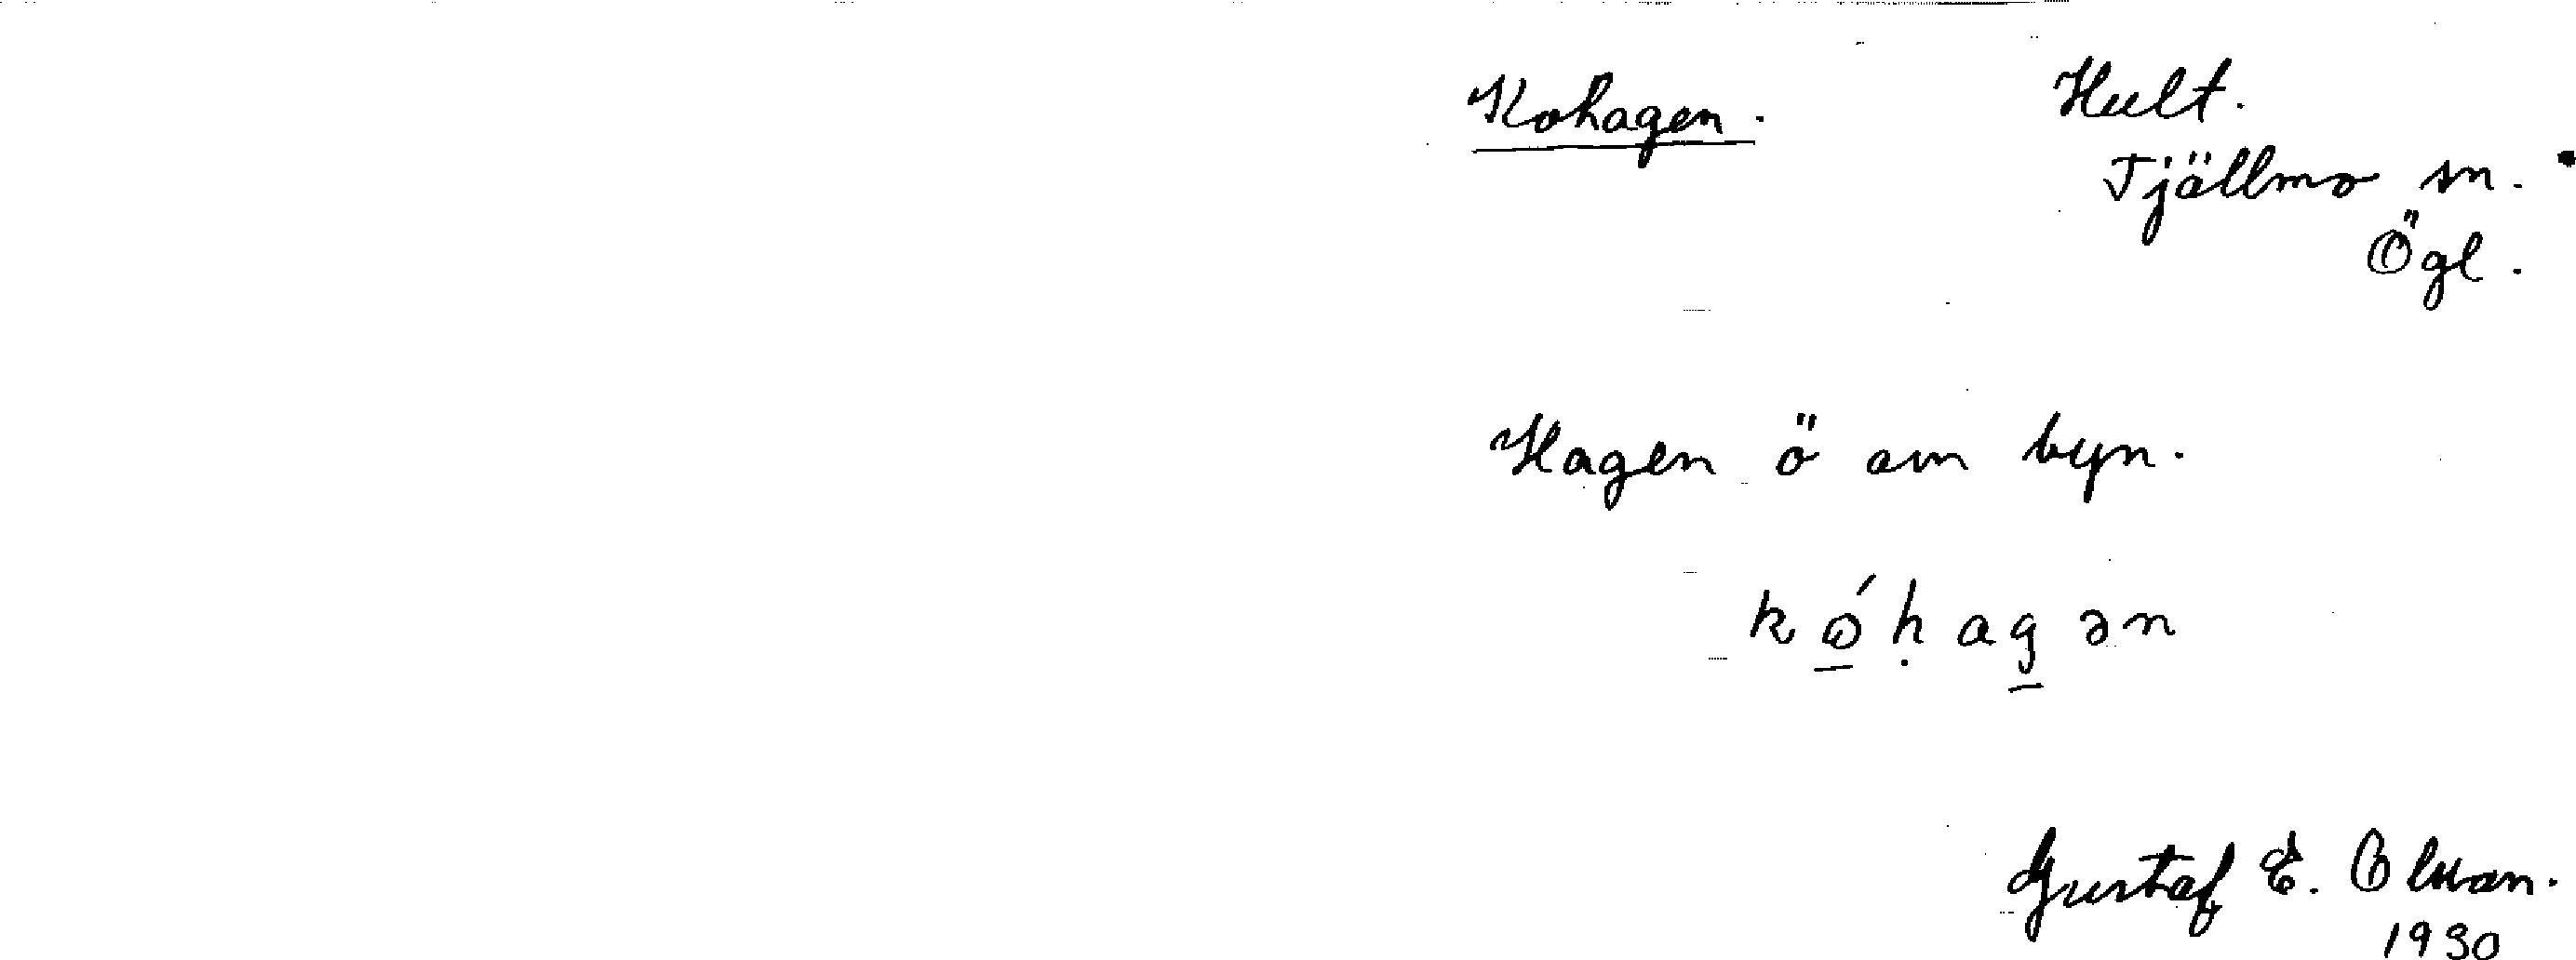 Kohagen. Hult.
Tjällmo sn.
Ögl.
Hagen ö om byn.
kó̱ḥag̱ən
Gustaf E. Olsson.
1930